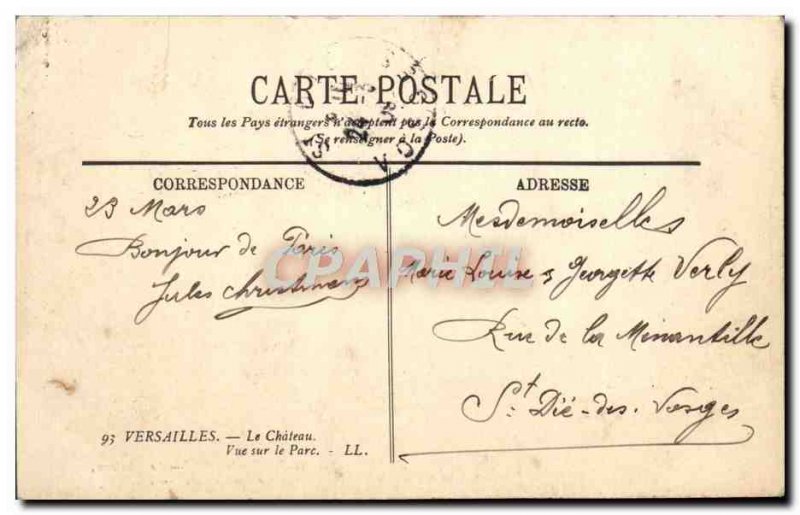 CARTE POSTALE
Tous les Pays étrangers n'acceptent pas la Correspondance au recto.
(Se renseigner à la Poste).
CORRESPONDANCE
23 Mars
Bonjour de Paris
Jules Christmann
93 VERSAILLES. — Le Château.
Vue sur le Parc. - LL.
ADRESSE
Mesdemoiselles
Marie Louise & Georgette Verly
Rue de la Ménantille
St. Dié-des-Vosges
CPAPHIL